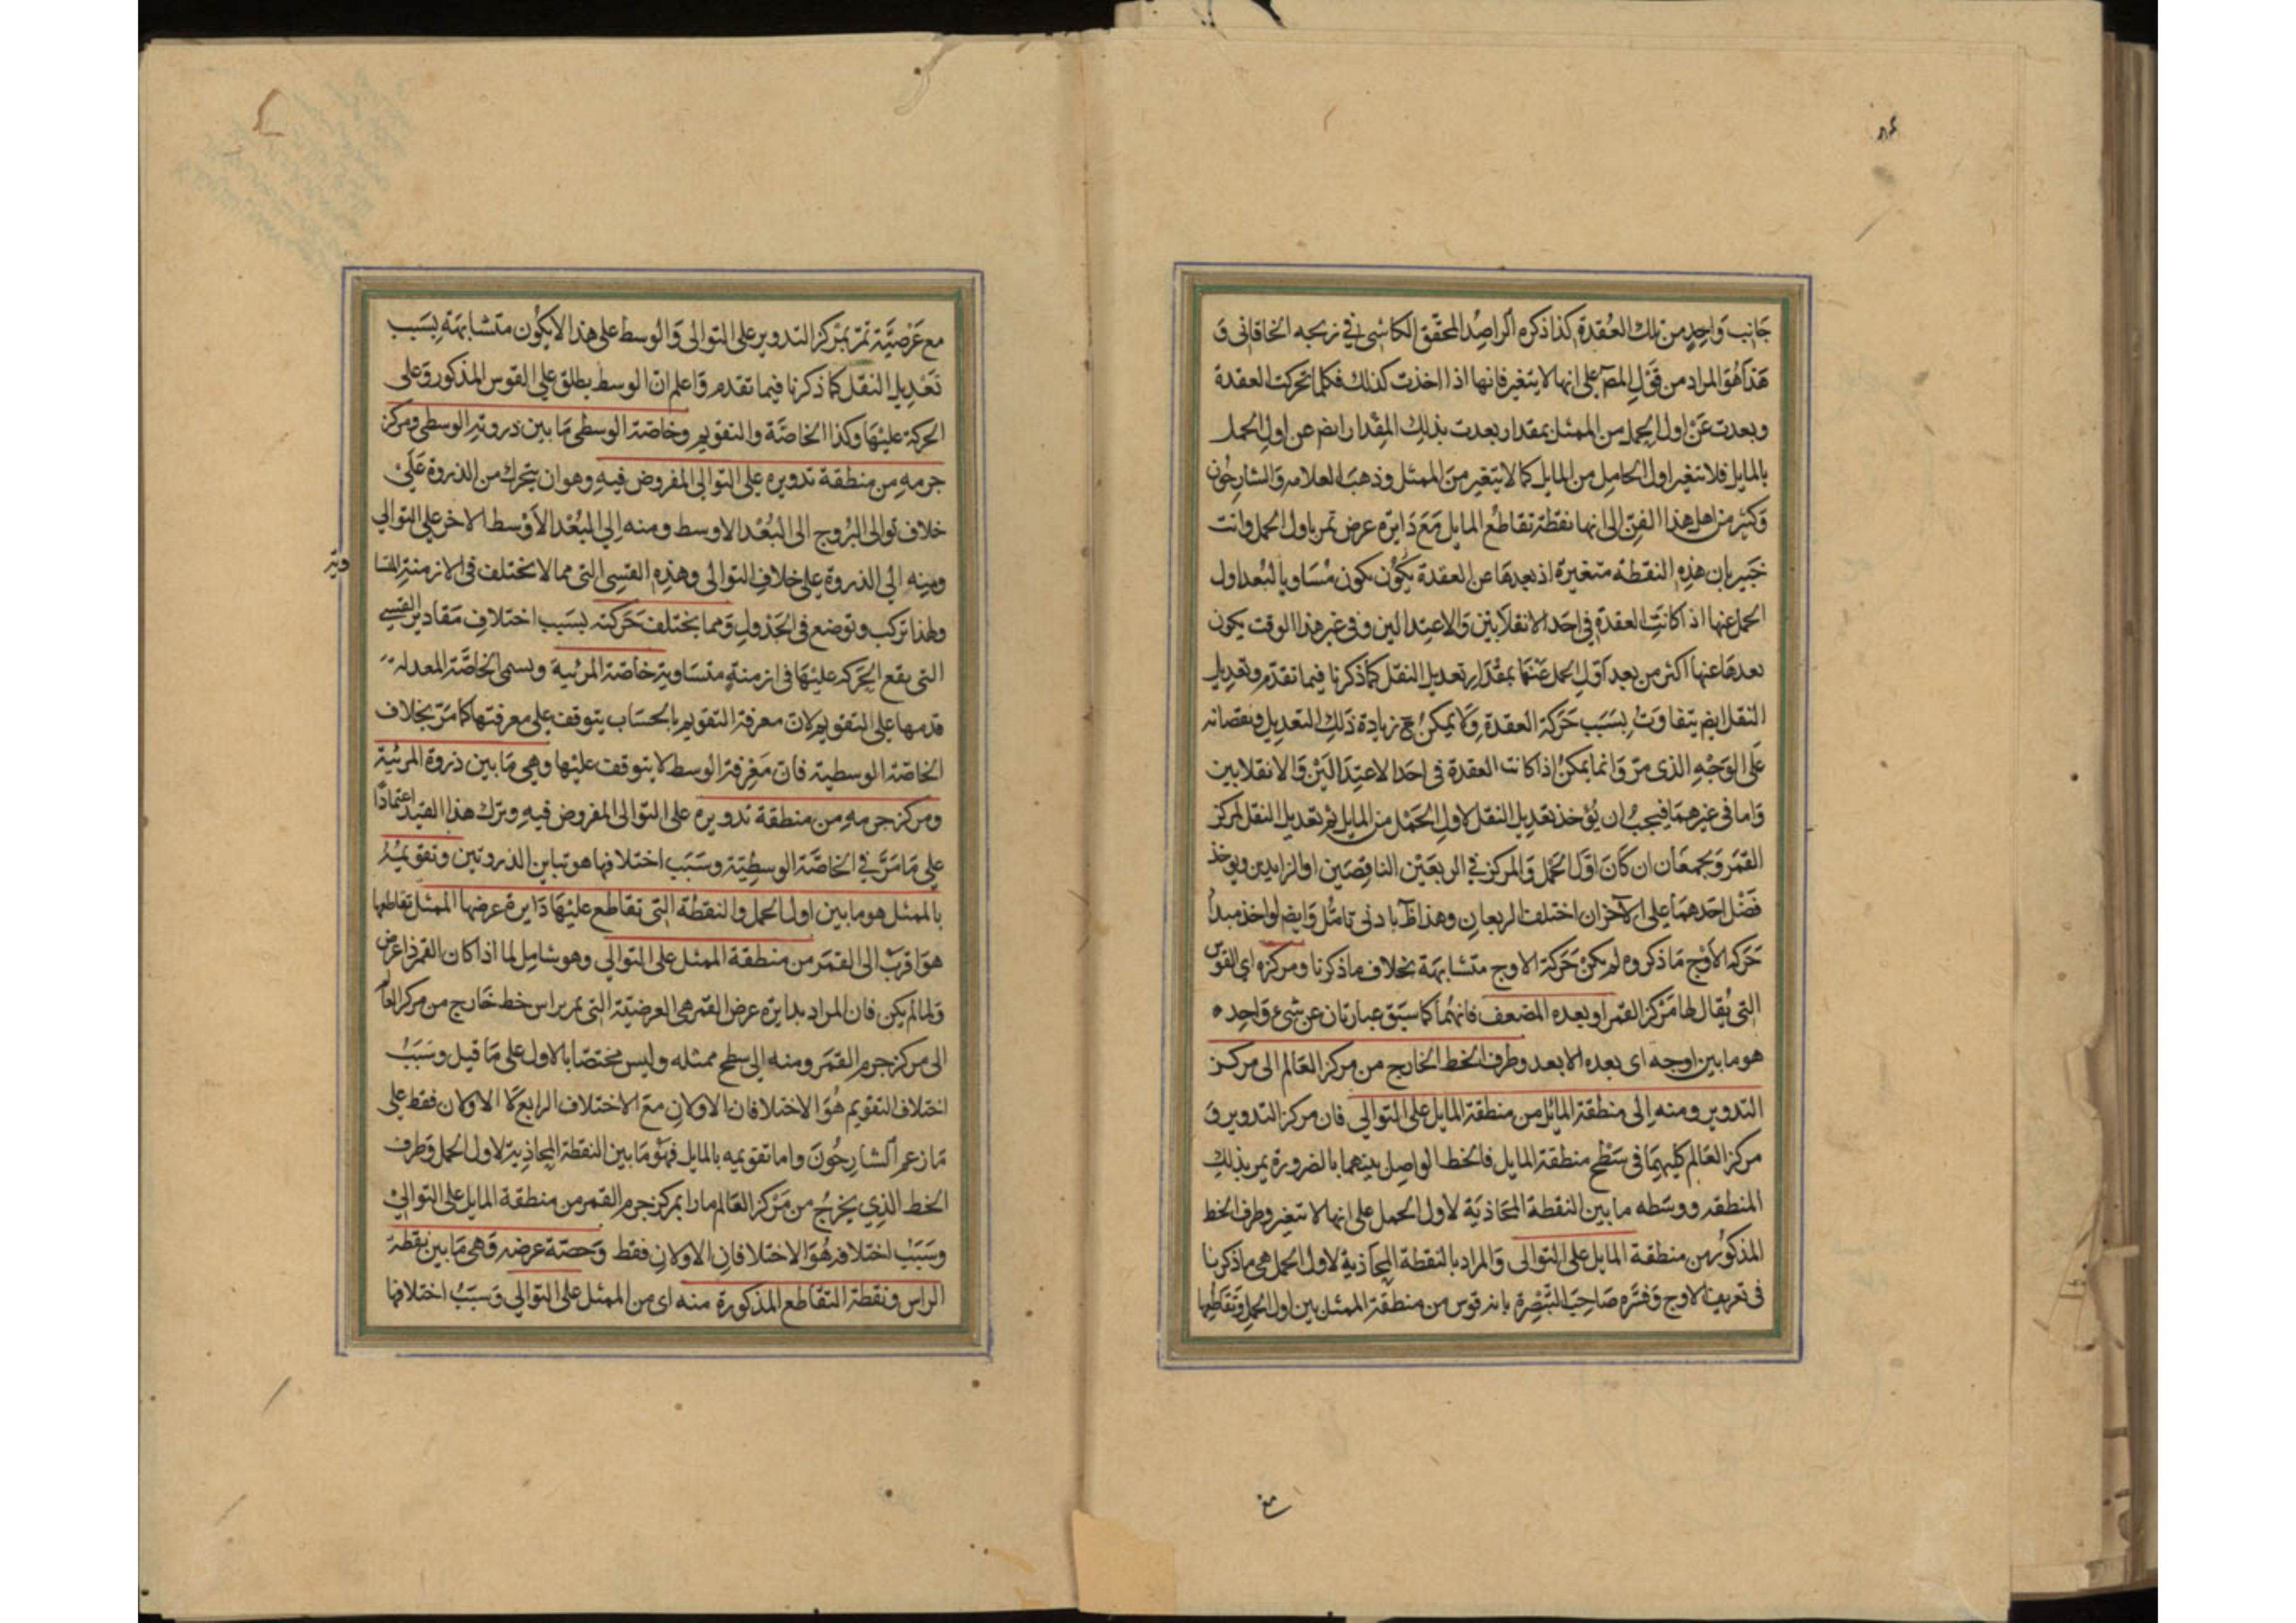 جانب واحد من تلك العقدة كذا ذكره الراصد المحقق الكاشى في زيجه الخاقانى و
هذا هو المراد من قول المصـ على انها لا يتغير فانها اذا اخذت كذلك فكلما تحركت العقدة
وبعدت عن اول الحمل من الممثل بمقدار بعدت بذلك المقدار ايضـ عن اول الحمل
بالمايل فلا تتغير اول الحامل من المايل كما لا يتغير من الممثل وذهب العلامه والشارحون
وكثير من اهل هذا الفن الى انها نقطة تقاطع المايل مع دايرة عرض تمر باول الحمل وانت
خبير بان هذه النقطه متغيرة اذ بعدها عن العقدة يكون يكون مساويا لبعد اول
الحمل عنها اذا كانت العقدة في احد الانقلابين والاعتدالين وفى غير هذا الوقت يكون
بعدها عنها اكثر من بعد اول الحمل عنها بمقدار تعديل النقل كما ذكرنا فيما تقدم وتعديل
النقل ايضـ يتفاوت بسبب حركة العقدة ولا يمكن ح زيادة ذلك التعديل ونقصانه
على الوجه الذى مر وانما يمكن اذا كانت العقدة فى احد الاعتدالين والانقلابين
واما فى غيرهما فيجب ان يؤخذ تعديل النقل لاول الحمل من المايل ثم تعديل النقل لمركز
القمر ويجمعان ان كان اول الحمل والمركز في الربعين الناقصين او الزايدين ويوخذ
فضل احدهما على الآخر ان اختلف الربعان وهذا ظـ بادنى تامل وايضـ لو اخذ مبدأ
حركة الاوج ما ذكروه لم يكن حركة الاوج متشابهة بخلاف ما ذكرنا ومركزه اى القوس
التى يقال لها مركز القمر او بعده المضعف فانهما كما سبق عبارتان عن شىء واحد ه
هو ما بين اوجه اى بعده الابعد وطرف الخط الخارج من مركز العالم الى مركز
التدوير ومنه الى منطقة المائل من منطقة المايل على التوالي فان مركز التدوير و
مركز العالم كليهما فى سطح منطقة المايل فالخط الواصل بينهما بالضرورة يمر بذلك
المنطقه ووسطه ما بين النقطة المحاذية لاول الحمل على انها لا تتغير وطرف الخط
المذكور من منطقة المايل على التوالى والمراد بالنقطة المحاذية لاول الحمل هى ما ذكرنا
فى تعريف الاوج وفسره صاحب التبصرة بانه قوس من منطقة الممثل بين اول الحمل وتقاطعها
مع عرضية تمر بمركز التدوير على التوالى والوسط على هذا لا يكون متشابهة بسبب
تعديل النقل كما ذكرنا فيما تقدم واعلم ان الوسط يطلق على القوس المذكور وعلى
الحركة عليها وكذا الخاصة والتقويم وخاصته الوسطى ما بين ذروته الوسطى ومركز
جرمه من منطقة تدويره على التوالى المفروض فيه وهو ان يتحرك من الذروة على
خلاف توالى البروج الى البعد الاوسط ومنه الي البعد الاوسط الاخر على التوالي
ومنه الي الذروة على خلاف التوالى وهذه القسى التى مما لا تختلف فى الازمنة المتسا
وية
ولهذا تركب وتوضع فى الجدول ومما يختلف حركته بسبب اختلاف مقادير القسي
التى يقع الحركة عليها فى ازمنة متساوية خاصته المرئية ويسمى الخاصة المعدلة
قدمها على التقويم لان معرفة التقويم بالحساب يتوقف على معرفتها كما مر بخلاف
الخاصة الوسطية فان معرفة الوسط لا يتوقف عليها وهي ما بين ذروة المرئية
ومركز جرمه من منطقة تدويره على التوالى المفروض فيه وترك هذا القيد اعتمادًا
على ما مر في الخاصة الوسطية وسبب اختلافها هو تباين الذروتين وتقويمه
بالممثل هو ما بين اول الحمل والنقطة التى تقاطع عليها دايرة عرضها الممثل تقاطعا
هو اقرب الى القمر من منطقة الممثل على التوالي وهو شامل لما اذا كان القمر ذا عرض
ولما لم يكن فان المراد بدايرة عرض القمر هى العرضية التى يمر براس خط خارج من مركز العالم
الى مركز جرم القمر ومنه الى سطح ممثله وليس مختصا بالاول على ما قيل وسبب
اختلاف التقويم هو الاختلافان الاولان مع الاختلاف الرابع لا الاولان فقط على
ما زعم الشارحون واما تقويمه بالمايل فهو ما بين النقطة المحاذية لاول الحمل وطرف
الخط الذي يخرج من مركز العالم مارا بمركز جرم القمر من منطقة المايل على التوالي
وسبب اختلافه هو الاختلافان الاولان فقط وحصة عرضه وهى ما بين نقطة
الراس ونقطة التقاطع المذكورة منه اى من الممثل على التوالي وسبب اختلافها